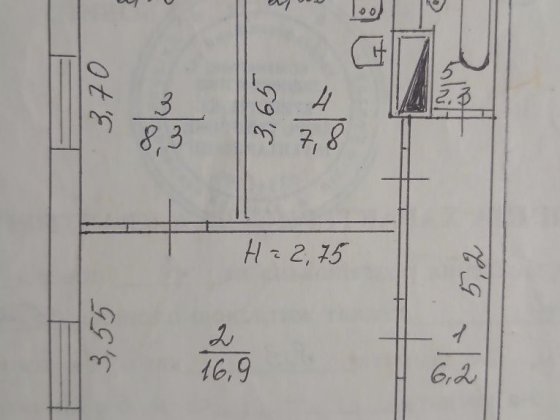 3,70
3
8,3
3,65
4
7,8
5
2,3
H = 2,75
5,2
3,55
2
16,9
1
6,2